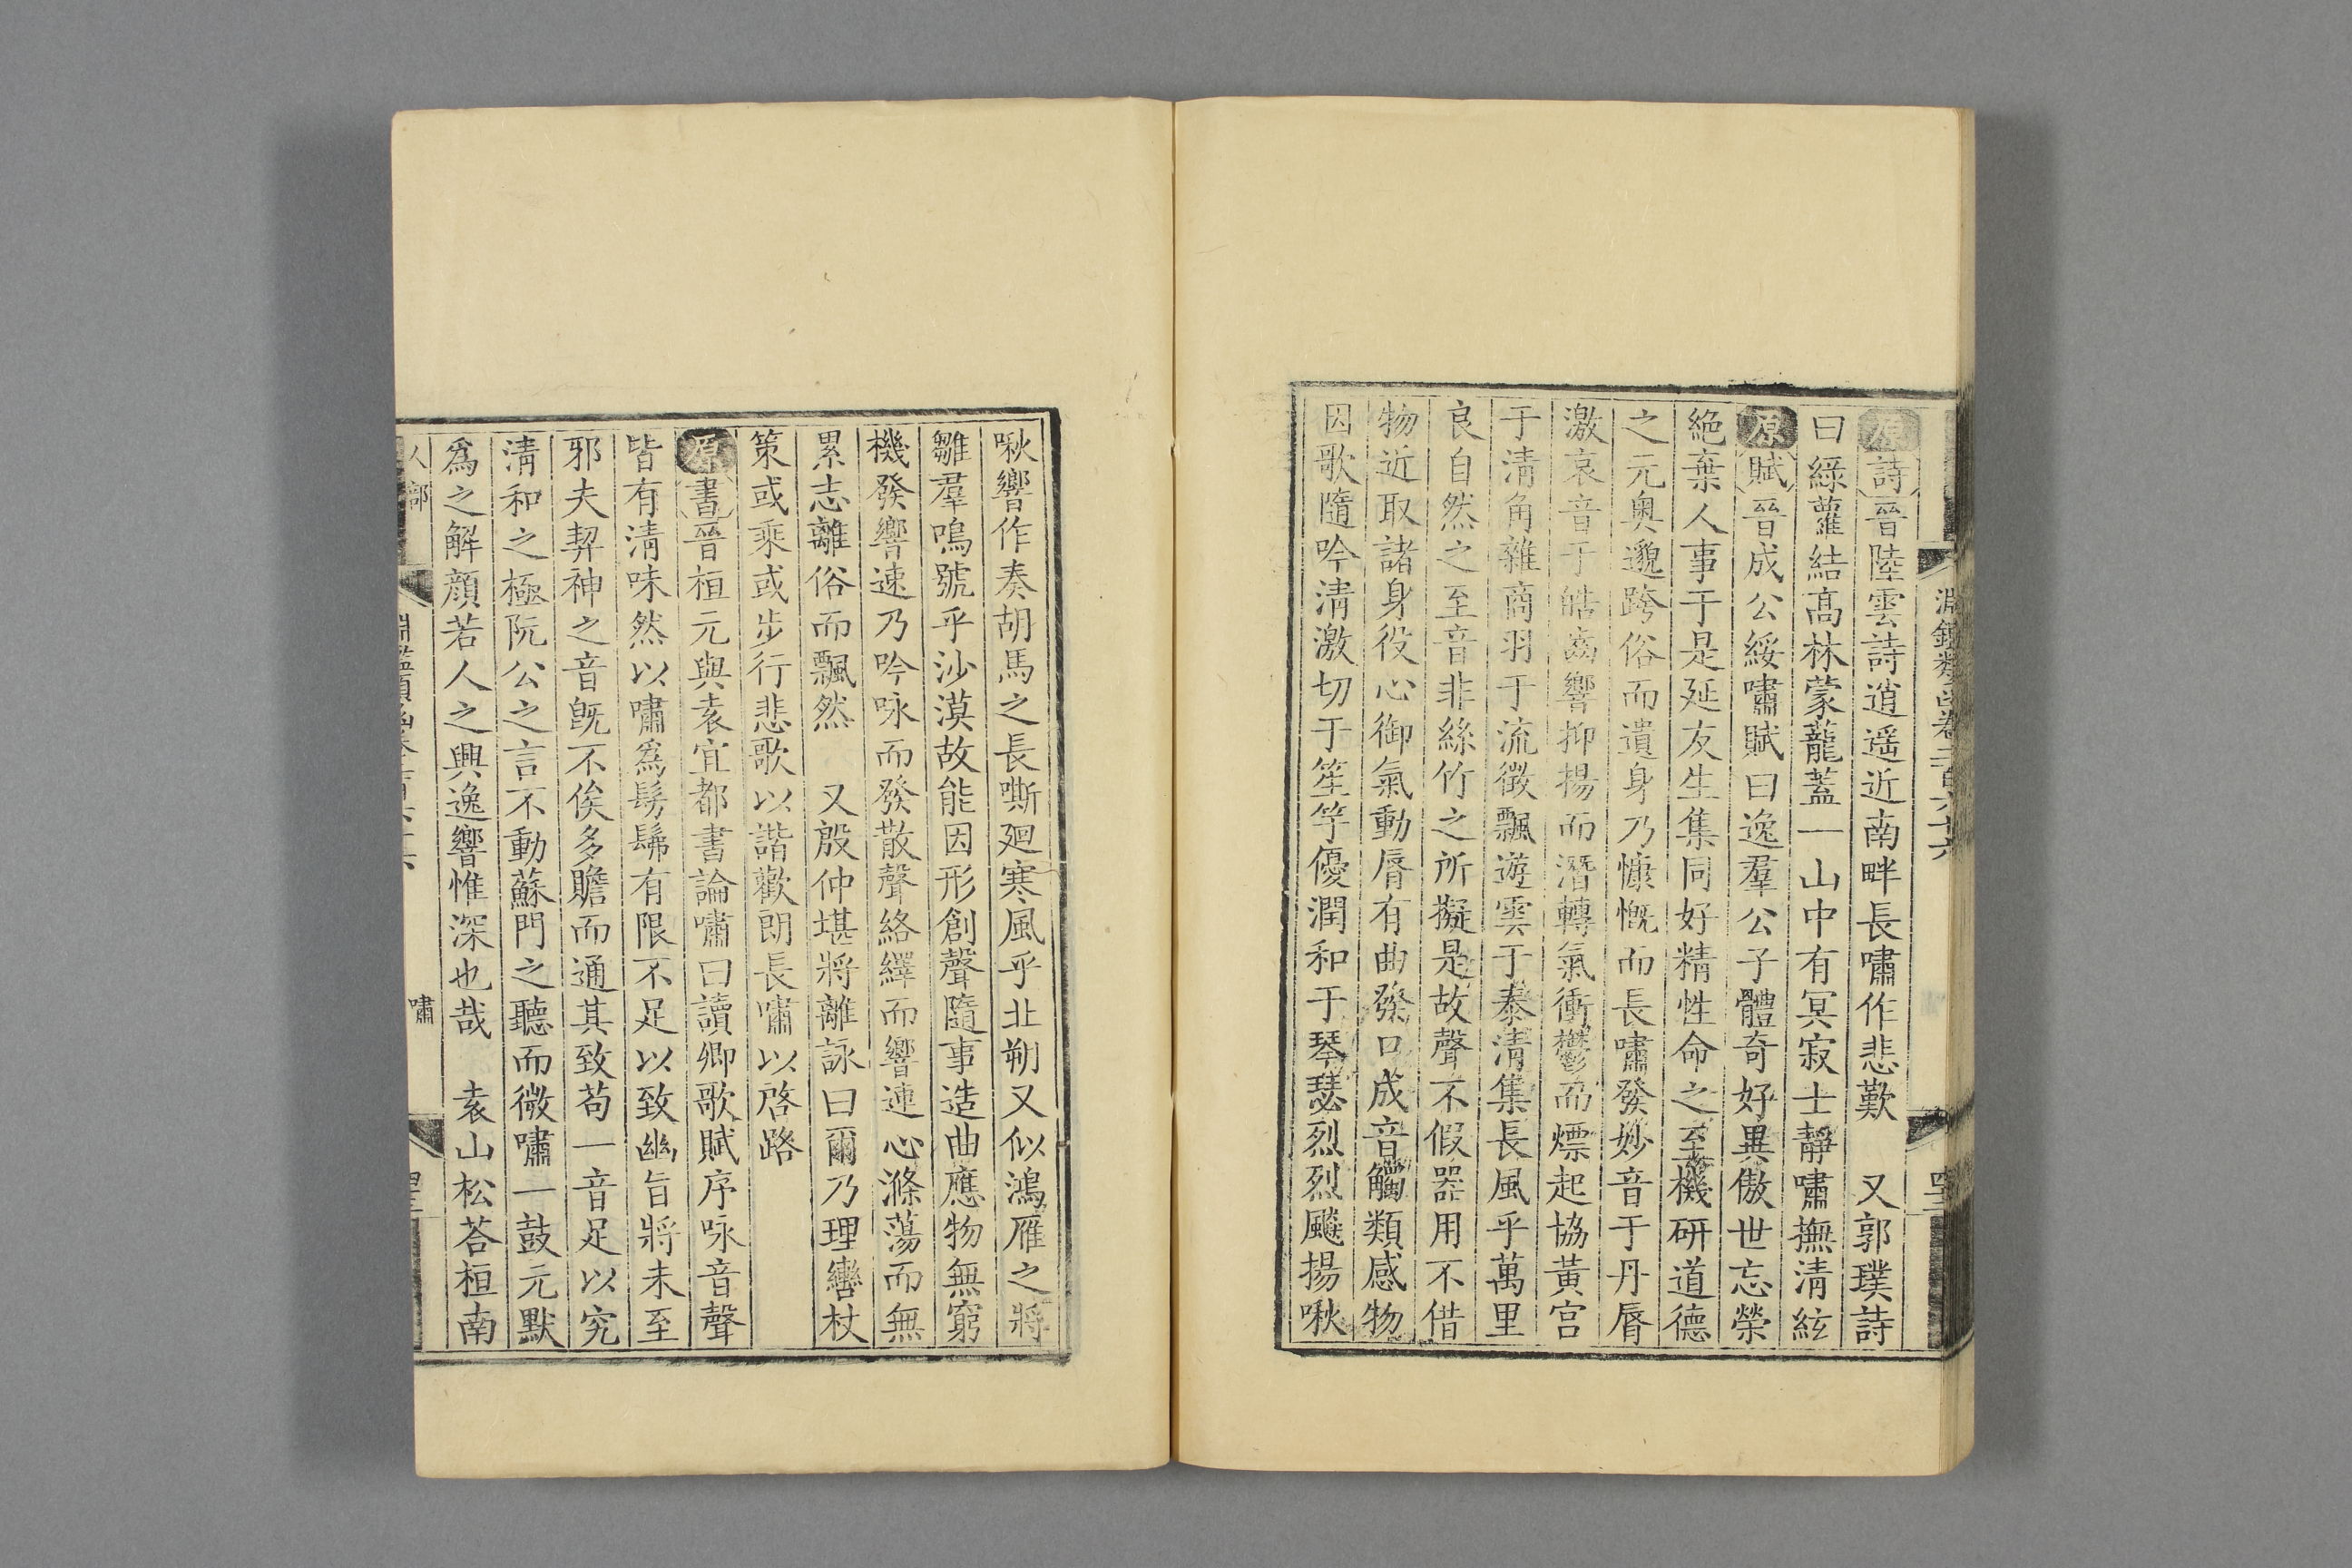 淵鑑類函卷二百六十六
原詩晉陸雲詩逍遥近南畔長嘯作悲歎　又郭璞詩
曰綠蘿結髙林蒙蘢蓋一山中有冥寂士靜嘯撫清絃
原賦晉成公綏嘯賦曰逸羣公子體奇好異傲世忘榮
絶棄人事于是延友生集同好精性命之至機研道德
之元奥邈跨俗而遺身乃慷慨而長嘯發妙音于丹脣
激哀音于皓齒響抑揚而潛轉氣衝鬱而熛起協黃宮
于清角雜商羽于流徵飄遊雲于泰清集長風乎萬里
良自然之至音非絲竹之所擬是故聲不假器用不借
物近取諸身役心御氣動脣有曲發口成音觸類感物
因歌隨吟清激切于笙竽優潤和于琴瑟烈烈飈揚啾
啾響作奏胡馬之長嘶廻寒風乎北朔又似鴻雁之將
雛羣鳴號乎沙漠故能因形創聲隨事造曲應物無窮
機發響速乃吟咏而發散聲絡繹而響連心滌蕩而無
累志離俗而飄然　又殷仲堪將離詠曰爾乃理轡杖
策或乘或步行悲歌以諧歡朗長嘯以啓路
原書晉桓元與袁宜都書論嘯曰讀卿歌賦序咏音聲
皆有清味然以嘯爲髣髴有限不足以致幽旨將未至
邪夫契神之音旣不俟多贍而通其致苟一音足以究
清和之極阮公之言不動蘇門之聽而微嘯一鼓元默
爲之解顔若人之興逸響惟深也哉　袁山松荅桓南
人部
嘯